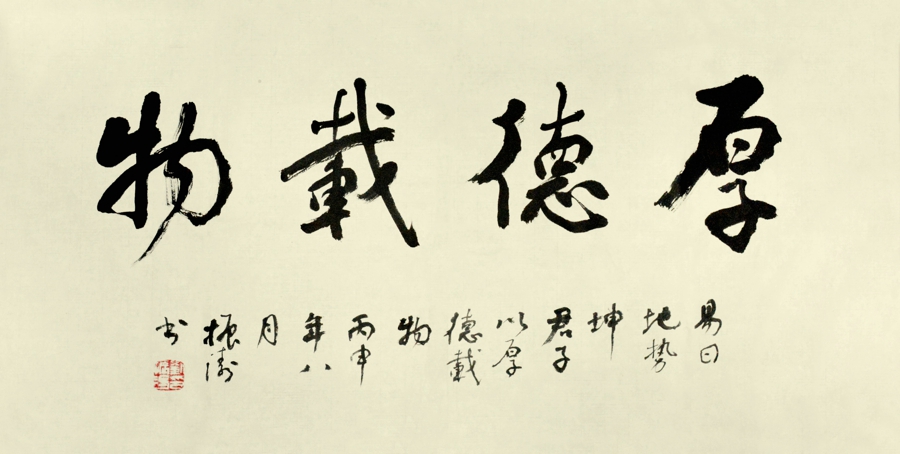 厚德載物
易曰
地势
坤
君子
以厚
德載
物
丙申
年八
月
振涛
书